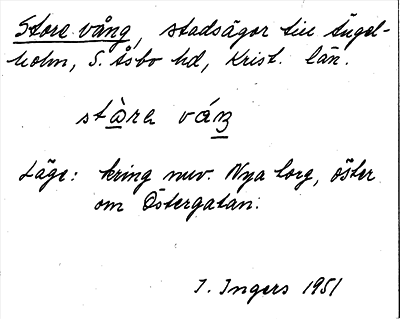 Stora vång, stadsägor till Ängel-
holm, S. Åsbo hd, Krist. län.
Läge: kring nuv. Nya torg, öster
om Östergatan.
I. Ingers 1951